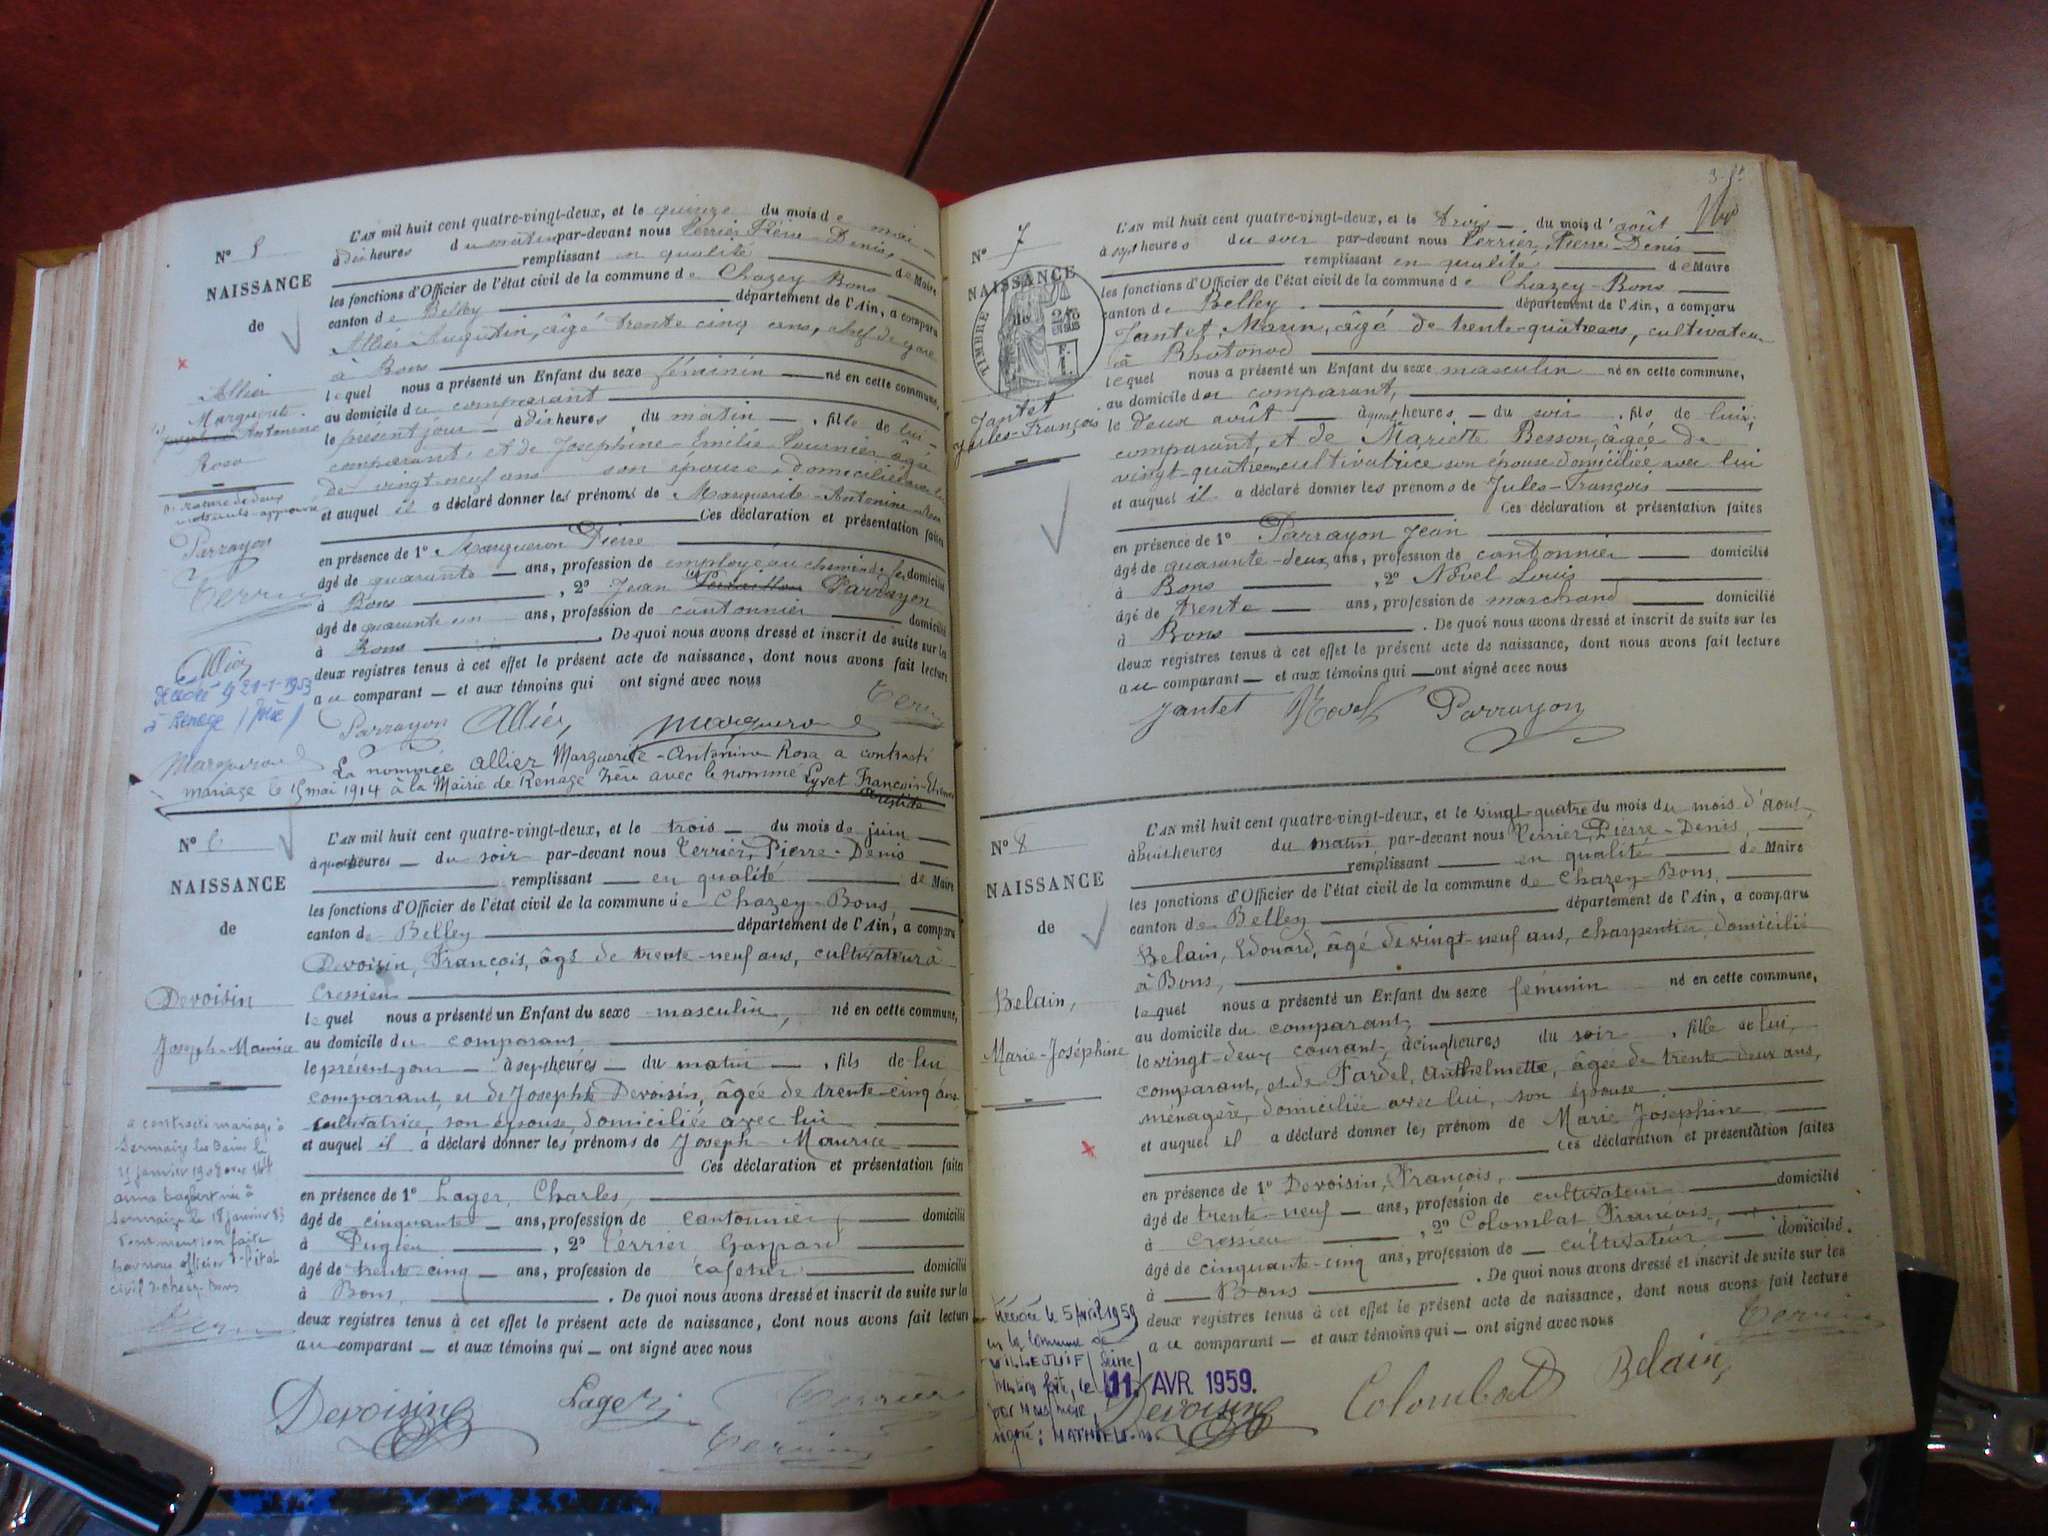 N° 5
NAISSANCE
de
Allier
Marguerite
Antonine
Rosa
rature de deux
mots nuls approuvé
Parrayon
Terrier
Allier
Décédée le 21-1-1953
à Renage (Isère)
Marqueron
L'AN mil huit cent quatre-vingt-deux, et le quinze du mois de mai
à dix heures du matin par-devant nous Terrier Pierre-Denis,
remplissant en qualité de Maire
les fonctions d'Officier de l'état civil de la commune de Chazey-Bons
canton de Belley département de l'Ain, a comparu
Allier Augustin, âgé trente cinq ans, chef de gare
à Bons
lequel nous a présenté un Enfant du sexe féminin né en cette commune,
au domicile du comparant
le présent jour à dix heures du matin, fille de lui
comparant, et de Joséphine-Emilie Fournier âgée
de vingt-neuf ans son épouse, domiciliée avec lui
et auquel il a déclaré donner les prénoms de Marguerite-Antonine-Rosa
Ces déclaration et présentation faites
en présence de 1° Marqueron Pierre
âgé de quarante ans, profession de employé au chemin de fer domicilié
à Bons, 2° Jean Parrayon
âgé de quarante un ans, profession de cantonnier domicilié
à Bons. De quoi nous avons dressé et inscrit de suite sur les
deux registres tenus à cet effet le présent acte de naissance, dont nous avons fait lecture
au comparant et aux témoins qui ont signé avec nous
Terrier
Parrayon Allier Marqueron
La nommée Allier Marguerite-Antonine Rosa a contracté
mariage le 15 mai 1914 à la Mairie de Renage Isère avec le nommé Eyvet François-Etienne
Aristide
N° 6
NAISSANCE
de
Devoisin
Joseph-Maurice
a contracté mariage à
Sermaize les Bains le
janvier 1908 avec
anna née à
Sermaize le 18 janvier 83
mention faite
par nous officier de l'état
civil Chazey-Bons
Terrier
L'AN mil huit cent quatre-vingt-deux, et le trois du mois de juin
à quatre heures du soir par-devant nous Terrier, Pierre-Denis
remplissant en qualité de Maire
les fonctions d'Officier de l'état civil de la commune de Chazey-Bons,
canton de Belley département de l'Ain, a comparu
Devoisin, François, âgé de trente-neuf ans, cultivateur à
Cressieu
lequel nous a présenté un Enfant du sexe masculin, né en cette commune,
au domicile du comparant
le présent jour à sept heures du matin, fils de lui
comparant, et de Josephte Devoisin, âgée de trente-cinq ans
cultivatrice, son épouse, domiciliée avec lui
et auquel il a déclaré donner les prénoms de Joseph-Maurice
Ces déclaration et présentation faites
en présence de 1° Lager, Charles,
âgé de cinquante ans, profession de cantonnier domicilié
à Pugieu, 2° Terrier Gaspard
âgé de trente-cinq ans, profession de cafetier domicilié
à Bons. De quoi nous avons dressé et inscrit de suite sur les
deux registres tenus à cet effet le présent acte de naissance, dont nous avons fait lecture
au comparant et aux témoins qui ont signé avec nous
Devoisin Lager Terrier
Terrier
N° 7
NAISSANCE
de
TIMBRE
Jantet
Jules-François
L'AN mil huit cent quatre-vingt-deux, et le trois du mois d'août
à sept heures du soir par-devant nous Terrier, Pierre-Denis
remplissant en qualité de Maire
les fonctions d'Officier de l'état civil de la commune de Chazey-Bons
canton de Belley département de l'Ain, a comparu
Jantet, Marin, âgé de trente-quatre ans, cultivateur
à Rhotonod
lequel nous a présenté un Enfant du sexe masculin né en cette commune,
au domicile du comparant,
le deux août à quatre heures du soir, fils de lui,
comparant, et de Mariette Besson, âgée de
vingt-quatre ans, cultivatrice son épouse domiciliée avec lui
et auquel il a déclaré donner les prénoms de Jules-François
Ces déclaration et présentation faites
en présence de 1° Parrayon Jean
âgé de quarante-deux ans, profession de cantonnier domicilié
à Bons, 2° Novel Louis
âgé de trente ans, profession de marchand domicilié
à Bons. De quoi nous avons dressé et inscrit de suite sur les
deux registres tenus à cet effet le présent acte de naissance, dont nous avons fait lecture
au comparant et aux témoins qui ont signé avec nous
Jantet Novel Parrayon
N° 8
NAISSANCE
de
Belain,
Marie-Joséphine
Décédée le 5 Avril 1959
en la commune de
VILLEJUIF (Seine)
Mention faite, le 11. AVR. 1959.
par Nous, Maire
signé: MATHIEU
L'AN mil huit cent quatre-vingt-deux, et le vingt-quatre du mois du mois d'aout
à huit heures du matin par-devant nous Terrier, Pierre-Denis,
remplissant en qualité de Maire
les fonctions d'Officier de l'état civil de la commune de Chazey-Bons,
canton de Belley département de l'Ain, a comparu
Belain, Edouard, âgé de vingt-neuf ans, charpentier, domicilié
à Bons,
lequel nous a présenté un Enfant du sexe féminin né en cette commune,
au domicile du comparant,
le vingt-deux courant, à cinq heures du soir, fille de lui,
comparant, et de Fardel, Anthelmette, âgée de trente-deux ans,
ménagère, domiciliée avec lui, son épouse
et auquel il a déclaré donner les prénom de Marie Joséphine
Ces déclaration et présentation faites
en présence de 1° Devoisin, François,
âgé de trente-neuf ans, profession de cultivateur domicilié
à Cressieu, 2° Colombat François,
âgé de cinquante-cinq ans, profession de cultivateur domicilié
à Bons. De quoi nous avons dressé et inscrit de suite sur les
deux registres tenus à cet effet le présent acte de naissance, dont nous avons fait lecture
au comparant et aux témoins qui ont signé avec nous
Terrier
Devoisin Colombat Belain